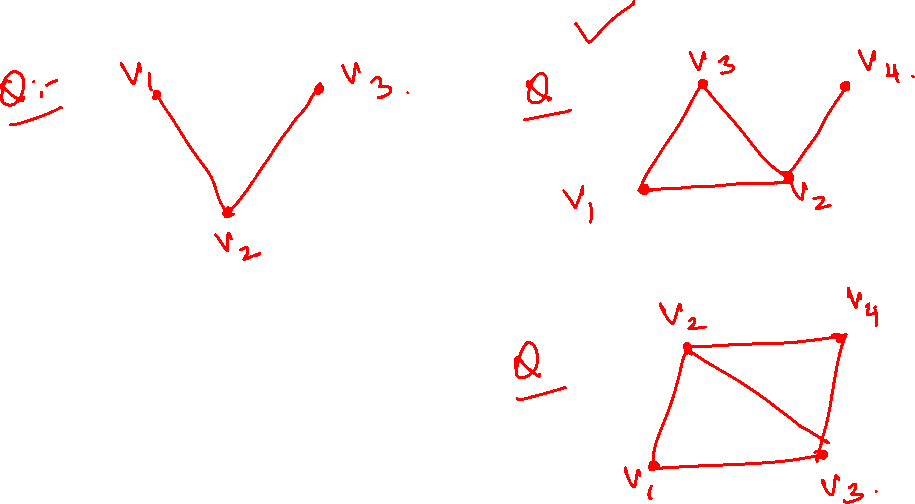 Q:-
V1
V3.
V2
Q
V3
V4.
V1
V2
Q
V2
V4
V1
V3.